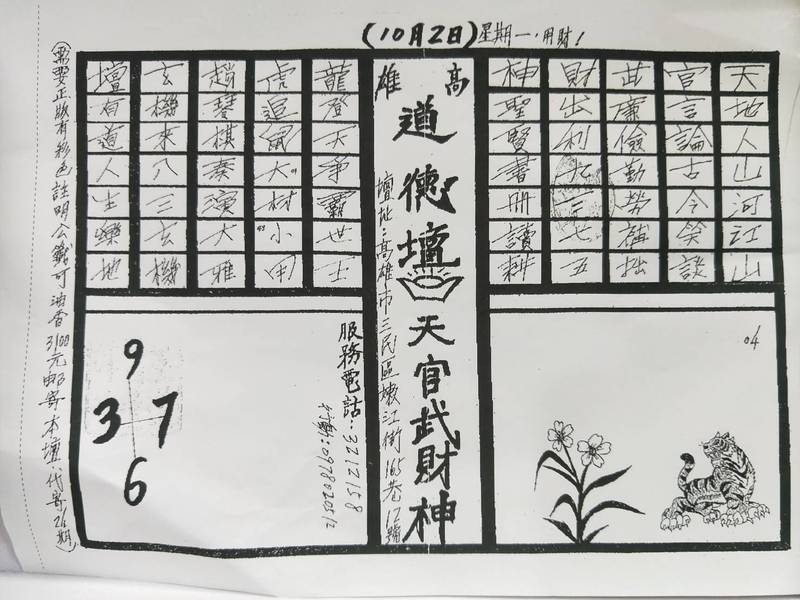 (10月2日)星期一,用財!
天地人山河江山
官言論古今笑談
此廉儉勤勞補拙
財出利九三七五
神聖賢書冊讀耕
04
高雄
道德壇 天官武財神
壇址:高雄市三民區嫩江街165巷12號
龍登天淨霸世士
虎追鼠大材小用
趙琴棋奏演大雅
玄機來八三玄機
壇有道人生樂地
服務電話:3212158
行動:0978020512
9
3 7
6
(需要正版有彩色註明公籤可油香3100元郵寄本壇代寄26期)